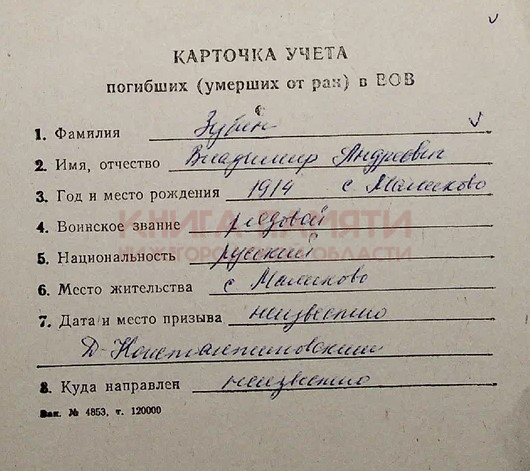 КАРТОЧКА УЧЕТА
погибших (умерших от ран) в ВОВ
1. Фамилия
2. Имя, отчество Владимир Андреевич
3. Год и место рождения 1914 с Маликово
4. Воинское звание рядовой
КНИГА ПАМЯТИ
НИЖЕГОРОДСКОЙ ОБЛАСТИ
5. Национальность русский
6. Место жительства с Маликово
7. Дата и место призыва неизвестно
Д-Константиновский
8. Куда направлен неизвестно
Зак. № 4853, т. 120000